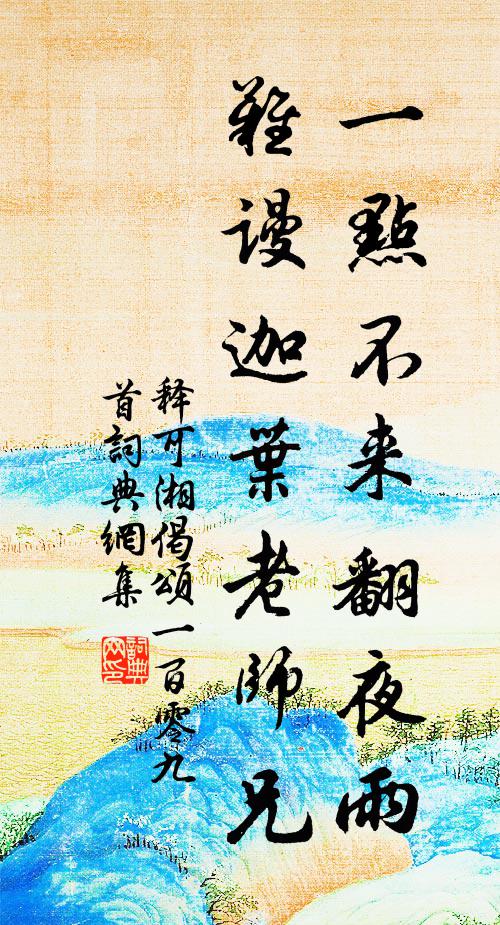 一點不来翻夜雨
難謾迦葉老師兄
释可湘偈頌一百零九
首詞典網集
詞典网印